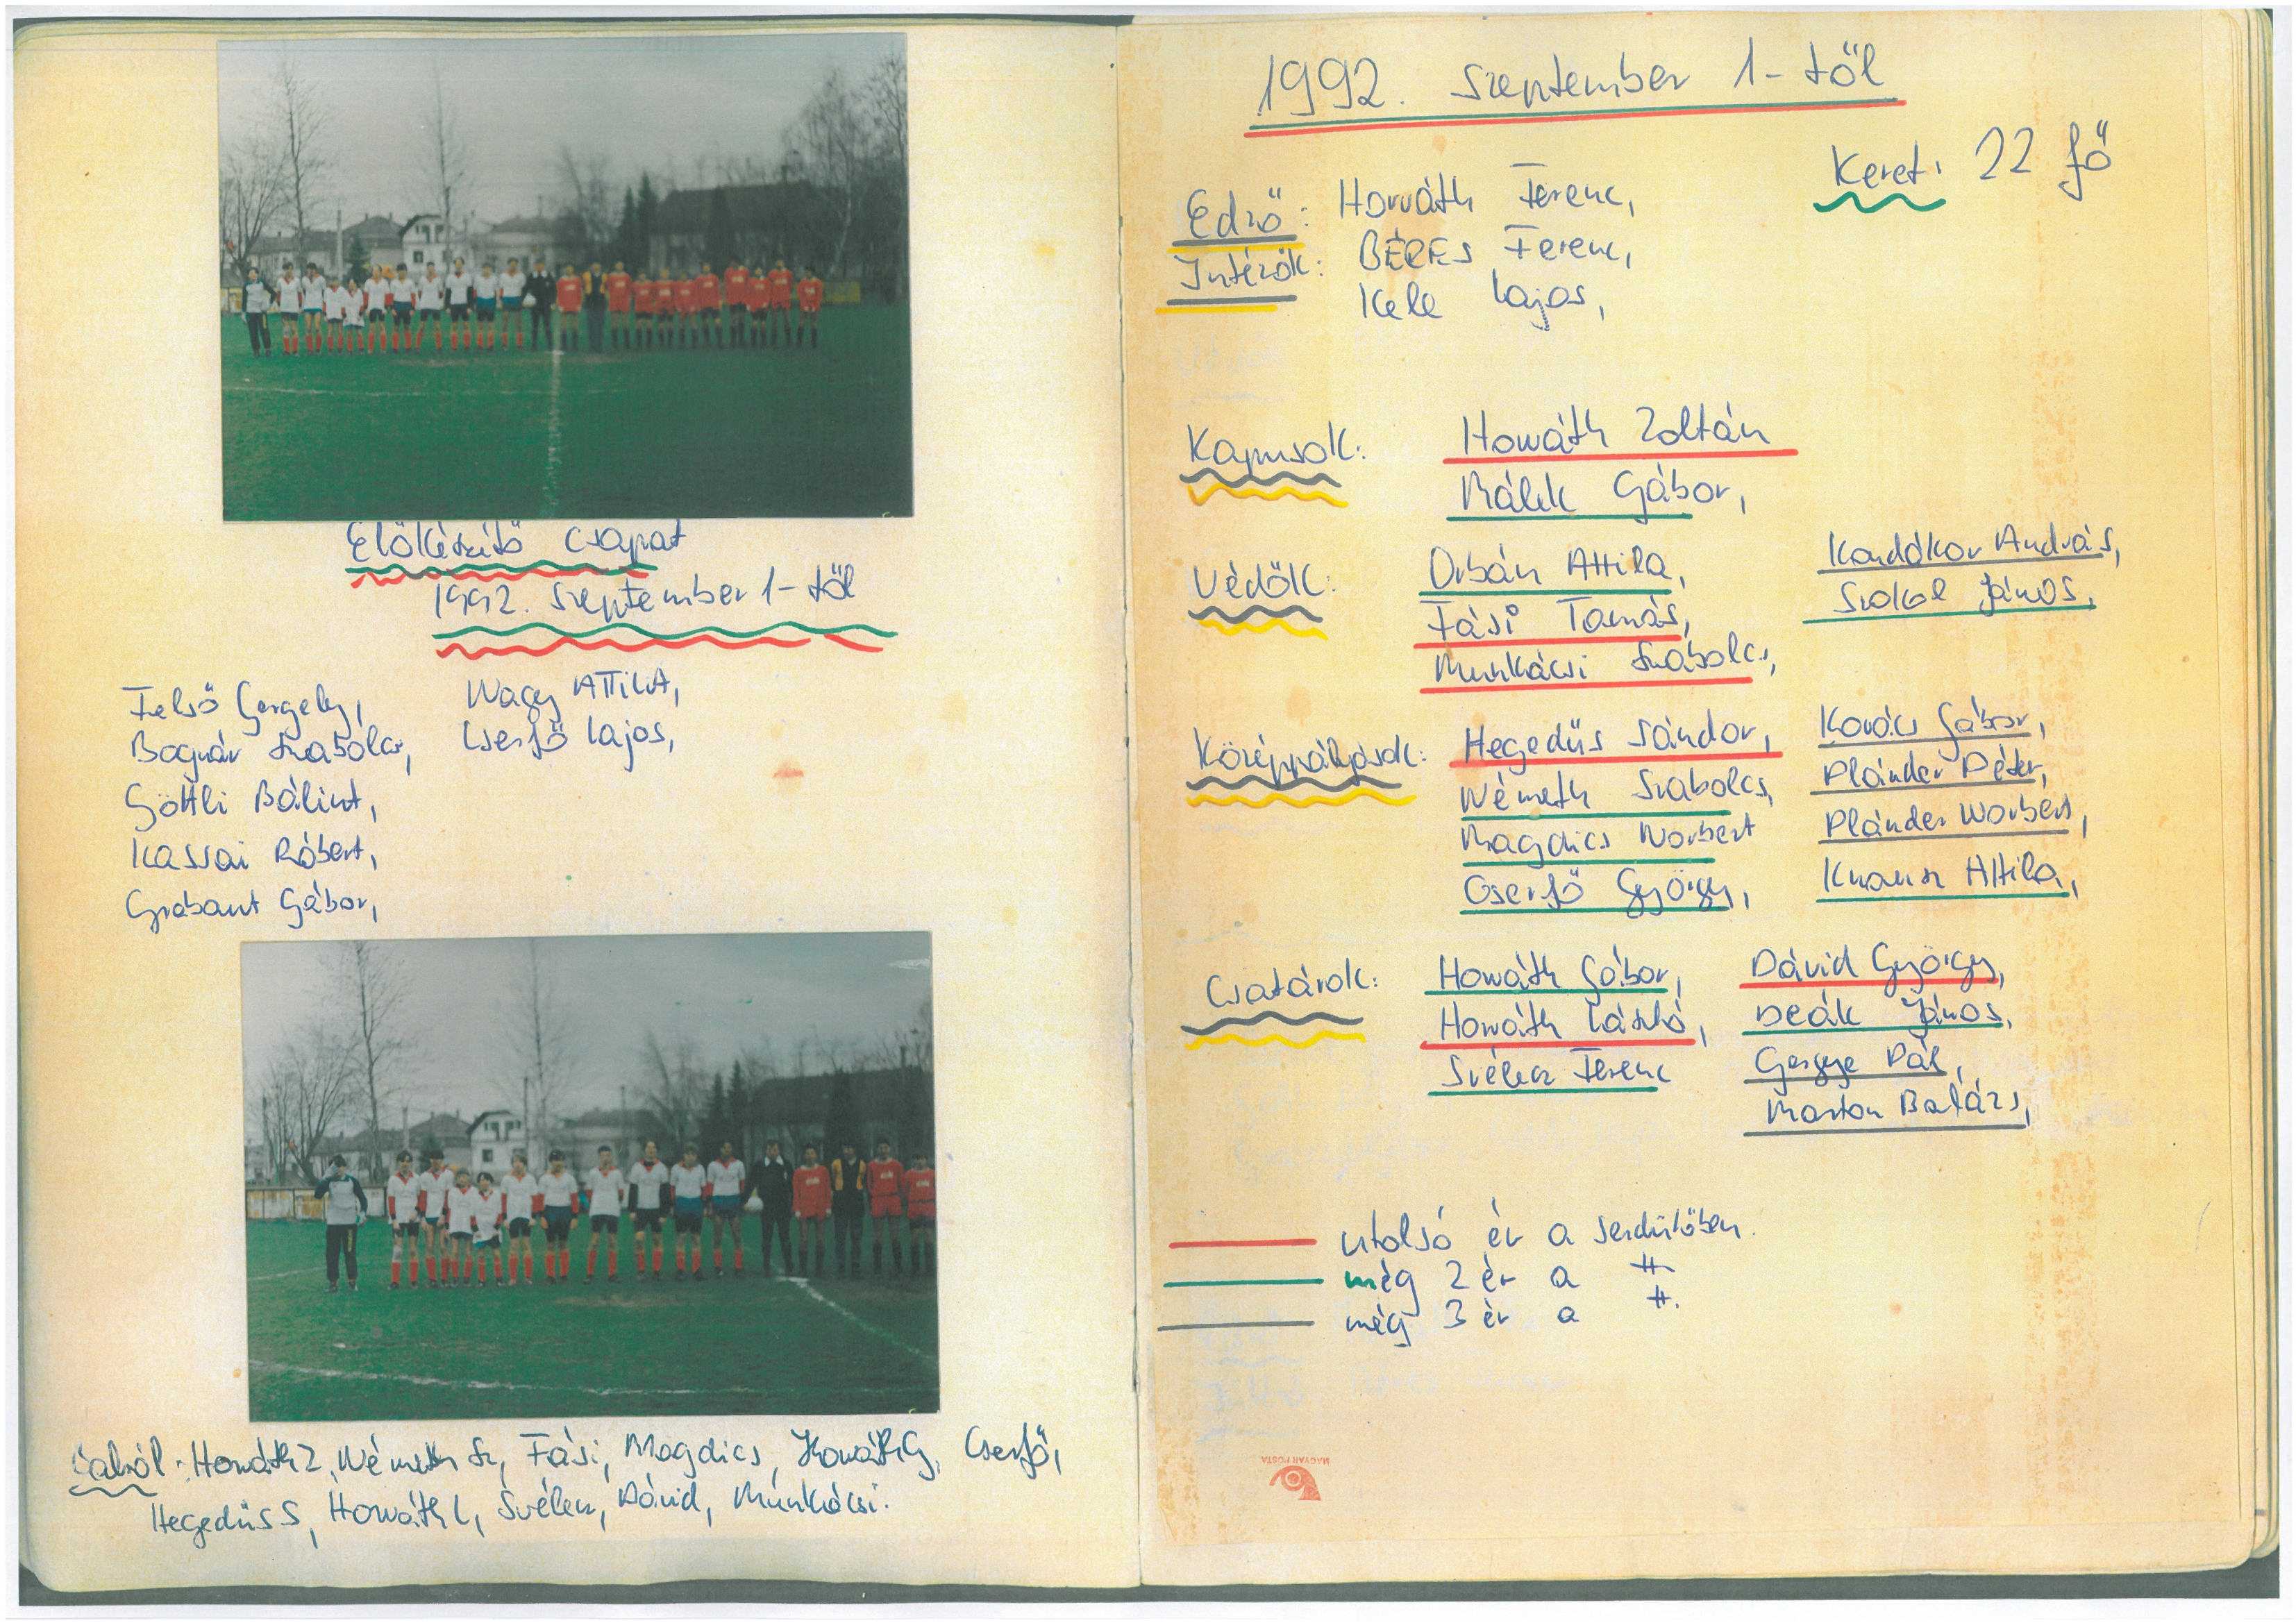 Előkészítő csapat
1992. szeptember 1-től
Felső Gergely,
Bognár Szabolcs,
Göttli Bálint,
Kassai Róbert,
Grabant Gábor,
Nagy Attila,
Cserfő Lajos,
balról: Horváth Z, Németh Sz, Fási, Magdics, Horváth G, Cserfő,
Hegedüs S, Horváth L, Svélecz, Dávid, Munkácsi.
1992. szeptember 1-től
Keret: 22 fő
Edző: Horváth Ferenc,
Intézők: BÉRES Ferenc,
Kele Lajos,
Kapusok: Horváth Zoltán
Málek Gábor,
Védők: Orbán Attila,
Fási Tamás,
Munkácsi Szabolcs,
Kondákor András,
Szokol János,
Középpályások: Hegedüs Sándor,
Németh Szabolcs,
Magdics Norbert
Cserfő György,
Kovács Gábor,
Plánder Péter,
Plánder Norbert,
Knausz Attila,
Csatárok: Horváth Gábor,
Horváth László,
Svélecz Ferenc
Dávid György,
Deák János,
Gergye Pál,
Marton Balázs,
utolsó év a serdülőben.
még 2 év a -II-
még 3 év a -II-
MAGYAR POSTA